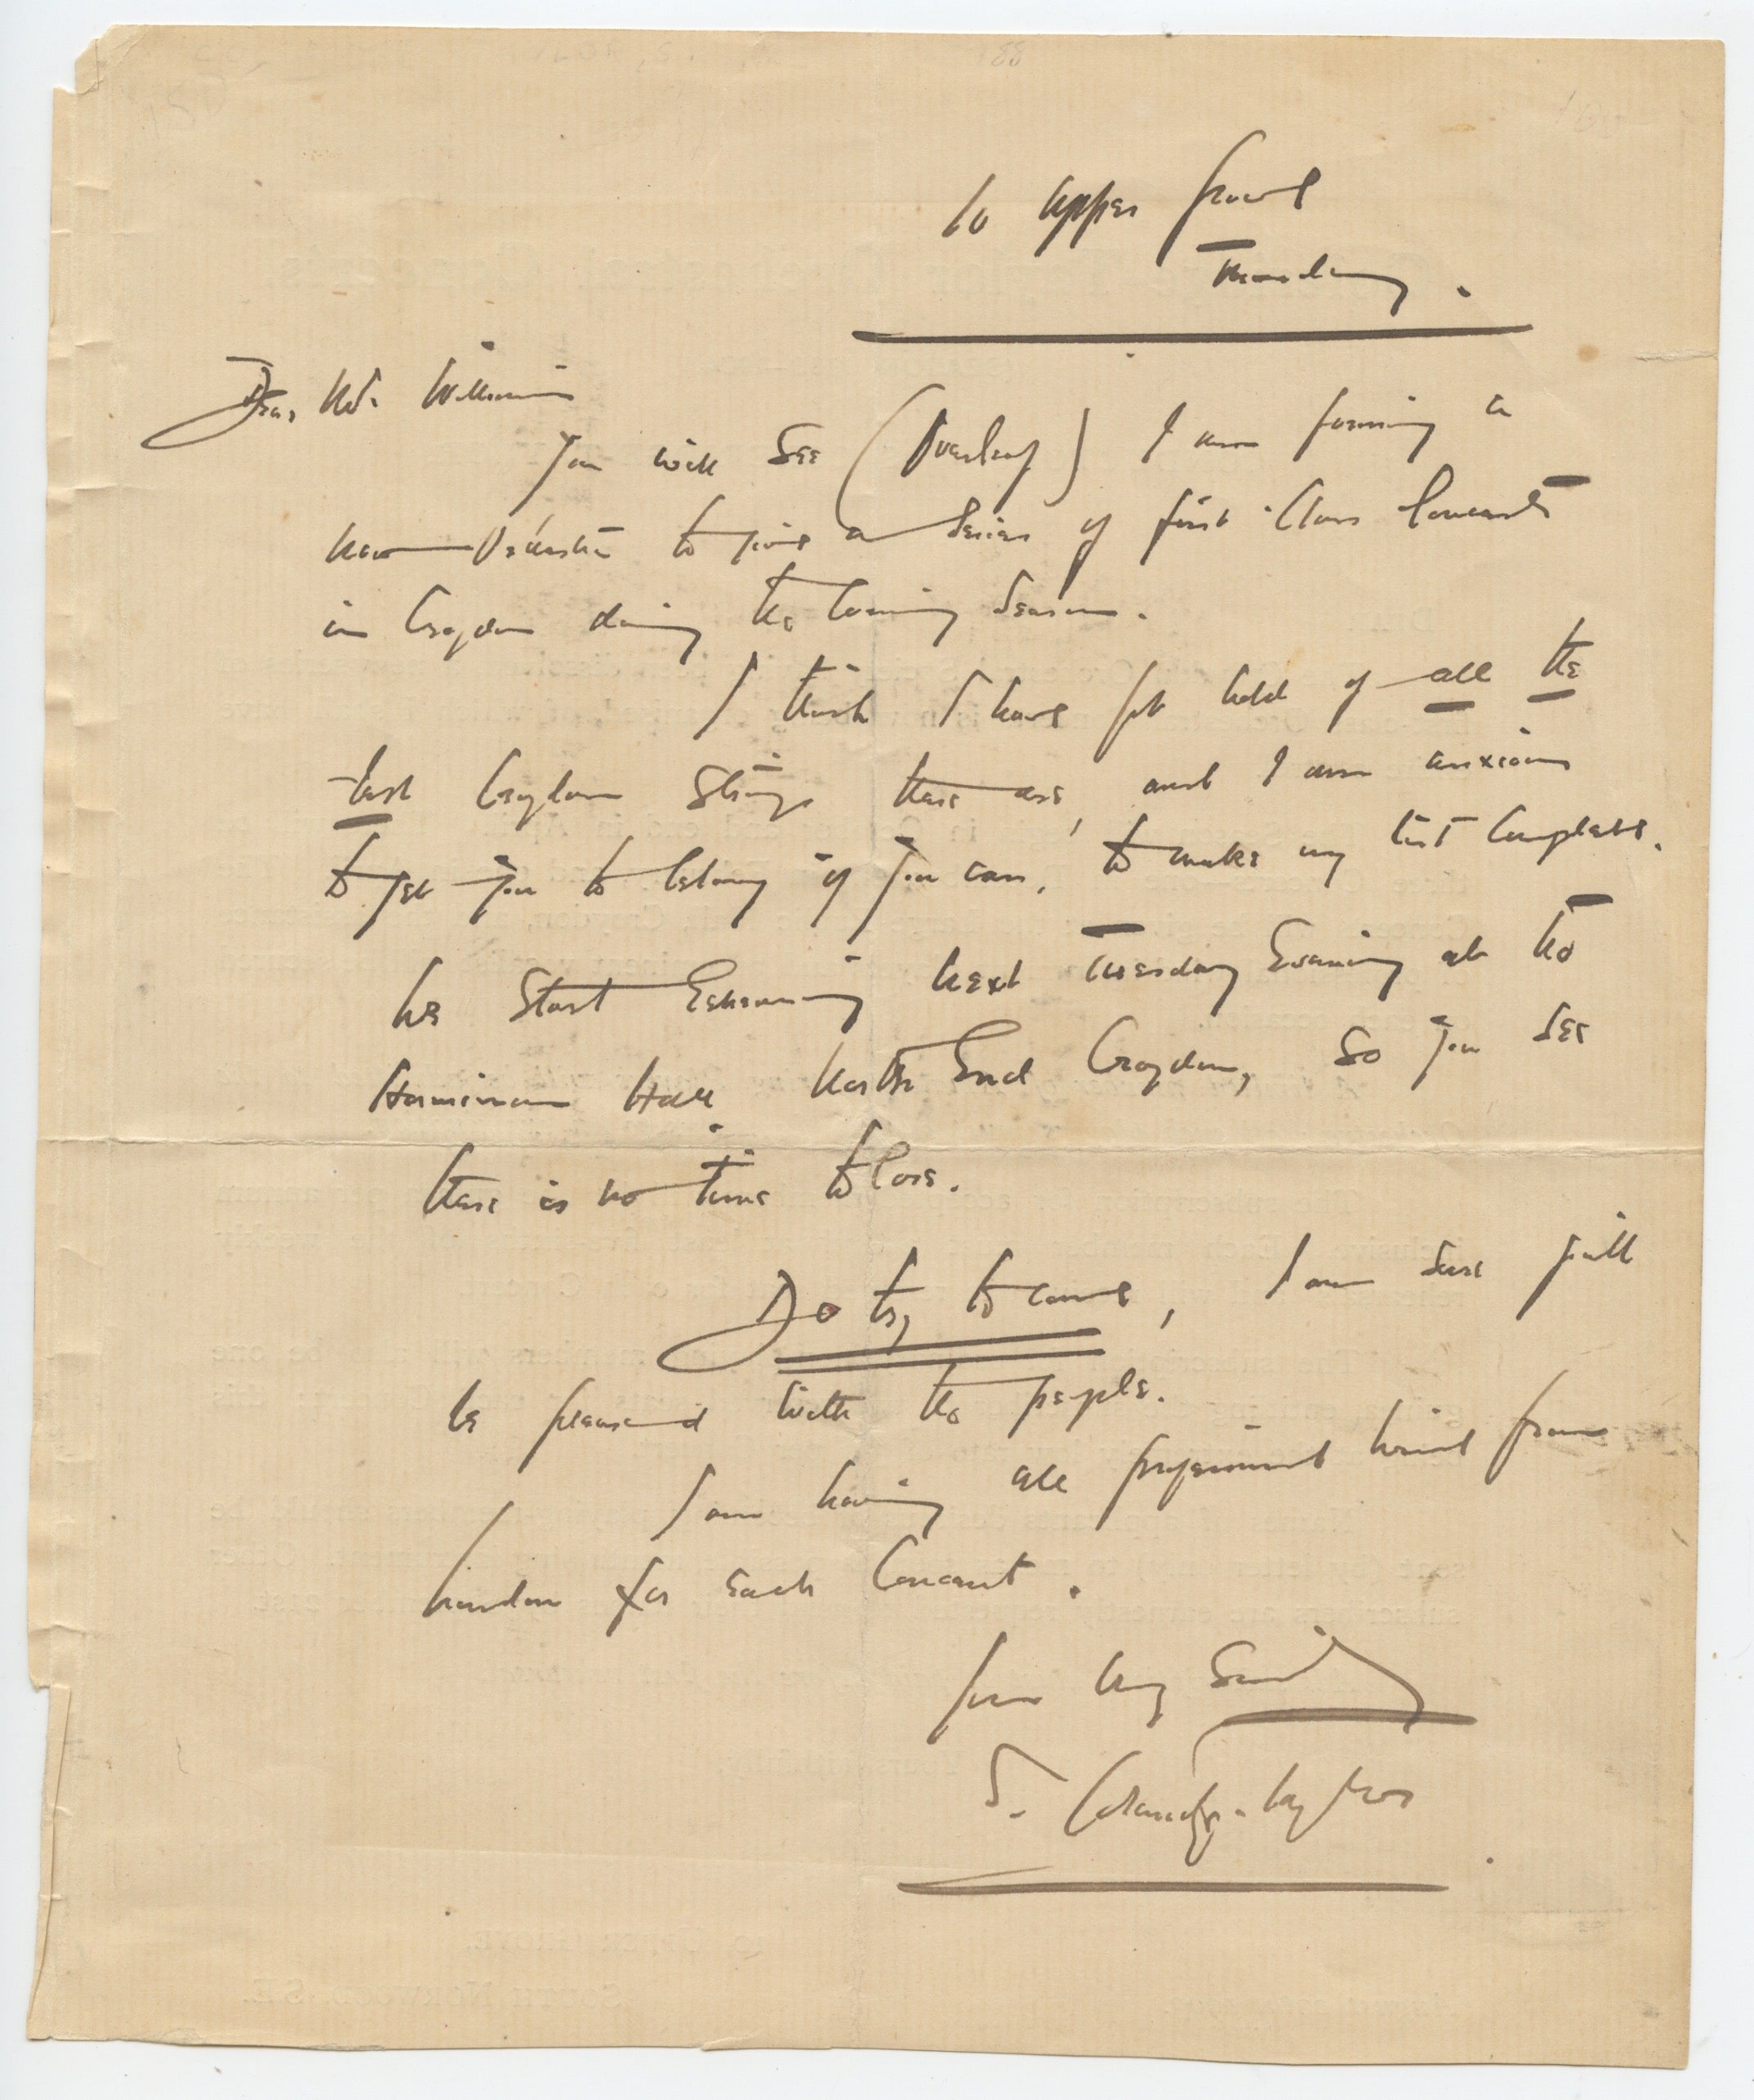 10 Upper Grove
Thursday.
Dear Mr. Williams
You will see (Overleaf) I am forming a
new Orchestra to give a Series of first Class Concerts
in Croydon during the Coming Season.
I think I have got hold of all the
best Croydon Strings there are, and I am anxious
to get you to belong if you can, to make my list Complete.
We Start Rehearsing next Tuesday Evening at the
Horniman Hall North End Croydon, so you see
there is no time to lose.
Do try to come, I am sure you'll
be pleased with the people.
I am having all professional Wind from
London for each Concert.
Yours Very Sincerely
S. Coleridge-Taylor
UPPER GROVE,
SOUTH NORWOOD, S.E.